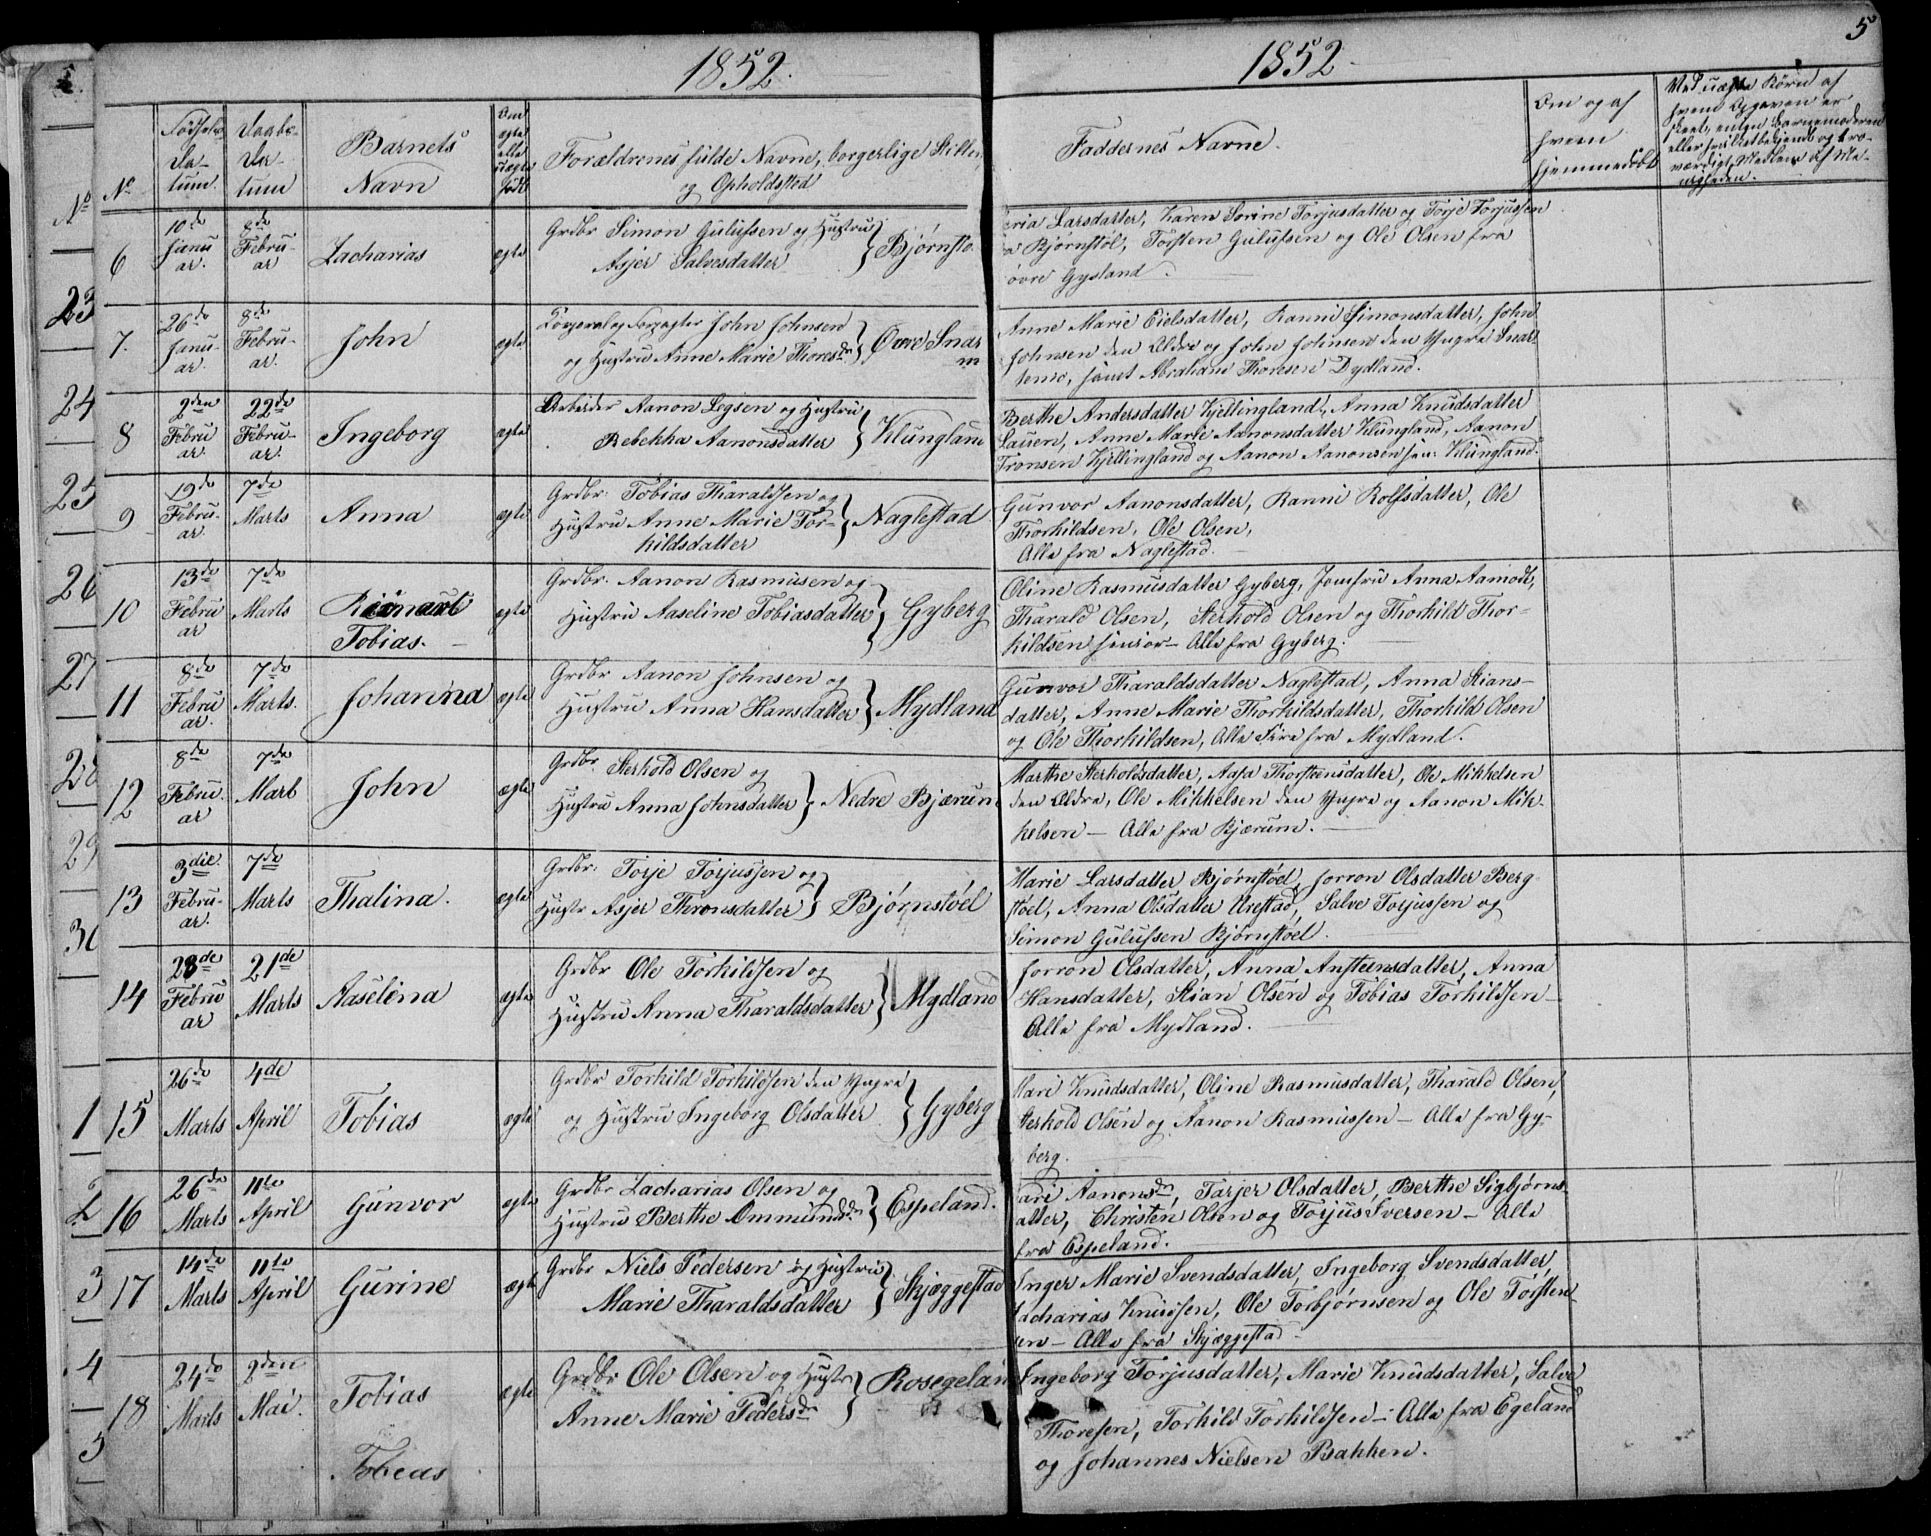 1852.
1852
5
No
Fødsels-
Da-
tum.
Daabs-
Da-
tum
Barnets
Navn
Om
ægte
eller
uægte
født
Forældrenes fulde Navne, borgerlige Stilling
og Opholdssted
Faddernes Navne.
Om og af
hvem
hjemmedøbt
Ved uægte Børn af
hvem Opgaven er
skeet, enten Barnemoderen
eller
værdigt Medlem af Me-
nigheden.
6
10de
Janu-
ar.
8de
Febru-
ar
Zacharias
ægte
Grdbr Simon Gulufsen og Hustru
Asjer Salvesdatter
Bjørnstø
Larsdatter, Karen Sørine Torjusdatter og Torje Torjussen
Bjørnstøl, Torsten Gulufsen og Ole Olsen fra
øvre Gysland.
23
7.
26de
Janu-
ar.
8de
Febru-
ar.
John
ægte
Korporal og Forpagter John Johnsen
og Hustru Anne Marie Thoresdr
Øvre Snar
Anne Marie Eielsdatter, Ranni Simonsdatter, John
Johnsen den Ældre og John Johnsen den Yngre Snar
temo, samt Abraham Thoresen Dydland.
24
8
2den
Febru
ar.
22de
Febru-
ar.
Ingeborg
ægte
Arbeider Aanon Legsen og Hustru
Rebekka Aanonsdatter
Klungland
Berthe Andersdatter Kjellingland, Anna Knudsdatter
Lauen, Anne Marie Aanonsdatter Klungland, Aanon
Tronsen Kjellingland og Aanon Aanonsen jun: Klungland.
25
9
19de
Febru-
ar.
7de
Marts
Anna
ægte
Grdbr: Tobias Tharaldsen og
Hustru Anne Marie Tor-
kildsdatter
Naglestad
Gunvor Aanonsdatter, Ranni Rolfsdatter, Ole
Thorkildsen, Ole Olsen,
Alle fra Naglestad.
26
10
13de
Febru
ar
7de
Marts
Reinart
Tobias.
ægte
Grdbr: Aanon Rasmusen og
Hustru Aaseline Tobiasdatter
Gyberg
Oline Rasmusdatter Gyberg, Jomfru Anna Aamodt,
Tharald Olsen, Sterkold Olsen og Thorkild Thor-
kildsen junior - Alle fra Gyberg.
27
11
8de
Febru
ar.
7de
Marts.
Johanna
ægte
Grdbr Aanon Johnsen og
Hustru Anna Hansdatter
Mydland
Gunvor Tharaldsdatter Naglestad, Anna Stians-
datter, Anne Marie Thorkildsdatter, Thorkild Olsen
og Ole Thorkildsen, Alle Fire fra Mydland.
28
12
8de
Febru.
ar
7de
Marts
John
ægte
Grdbr. Sterkold Olsen og
Hustru Anna Johnsdatter
Nedre Bjærum
Marthe Sterkoldsdatter, Aasa Thorsteensdatter, Ole Mikkelsen
den Ældre, Ole Mikkelsen den Yngre og Aanon Mik-
kelsen - Alle fra Bjærum.
29
13
3die
Febru-
ar.
7de
Marts
Thalina.
ægte
Grdbr: Torje Torjussen og
Hustr Asjer Thronsdatter
Bjørnstøel
Marie Larsdatter Bjørnstøel, Jorron Olsdatter Berg
støel, Anna Olsdatter Urestad, Salve Torjussen og
Simon Gulufsen Bjørnstøel.
30
14
28de
Febru
ar
21de
Marts
Aaselina
ægte
Grdbr Ole Torkildsen og
Hustru Anna Tharaldsdatter
Mydland
Jorron Olsdatter, Anna Ansteensdatter, Anna
Hansdatter, Stian Olsen og Tobias Torkildsen -
Alle fra Mydland.
1
15
26de
Marts
4de
April
Tobias
ægte
Grdbr Torkild Torkildsen den Yngre
og Hustru Ingeborg Olsdatter
Gyberg
Mari Knudsdatter, Oline Rasmusdatter, Tharald Olsen,
Sterkold Olsen og Aanon Rasmussen - Alle fra Gy-
berg.
2
16
26de
Marts
11te
April
Gunvor
ægte
Grdbr Zacharias Olsen og
Hustru Berthe Ommundsdr
Espeland.
Mari Aanonsdr, Tarjer Olsdatter, Berthe Sigbjørns-
datter, Christen Olsen og Torjus Iversen - Alle
fra Espeland.
3
17
14de
Marts
11te
April
Gurine
ægte
Grdbr Niels Pedersen og Hustru
Marie Tharaldsdatter
Skjæggestad
Inger Marie Svendsdatter, Ingeborg Svendsdatter,
Zacharias Knudsen, Ole Torbjørnsen og Ole Torsten-
sen - Alle fra Skjæggestad.
4
18
24de
Marts
2den
Mai.
Tobias
ægte
Grdbr Ole Olsen og Hustr
Anne Marie Pedersdr
Rosegeland
Ingeborg Torjusdatter, Marie Knudsdatter, Salve
Thoresen, Torkild Torkildsen - Alle fra Egeland
og Johannes Nielsen Bakken.
5
Tobias